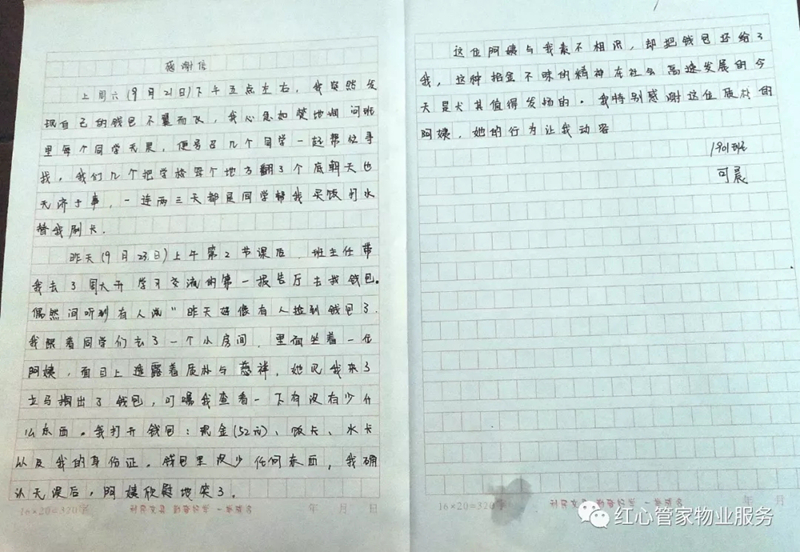 感谢信
上周六(9月21日)下午五点左右，我突然发
现自己的钱包不翼而飞，我心急如焚地询问班
里每个同学无果，便号召几个同学一起帮忙寻
找，我们几个把学校每个地方翻了个底朝天也
无济于事，一连两三天都是同学帮我买饭打水
替我刷卡。
昨天(9月23日)上午第2节课后，班主任带
我去了周六开学习交流的第一报告厅去找钱包。
偶然间听到有人说"昨天好像有人捡到钱包了，
我跟着同学们去了一个小房间，里面坐着一位
阿姨，面目上透露着质朴与慈祥，她见我来了
立马掏出了钱包，叮嘱我查看一下有没有少什
么东西。我打开钱包：现金(52元)、饭卡、水卡
以及我的身份证，钱包里没少任何东西，我确
认无误后，阿姨欣慰地笑了。
16×20=320字
年 月 日
这位阿姨与我素不相识，却把钱包还给了
我，这种拾金不昧的精神在社会高速发展的今
天是尤其值得发扬的。我特别感谢这位质朴的
阿姨，她的行为让我动容
1901班
可晨
16×20=320字
年 月 日
红心管家物业服务